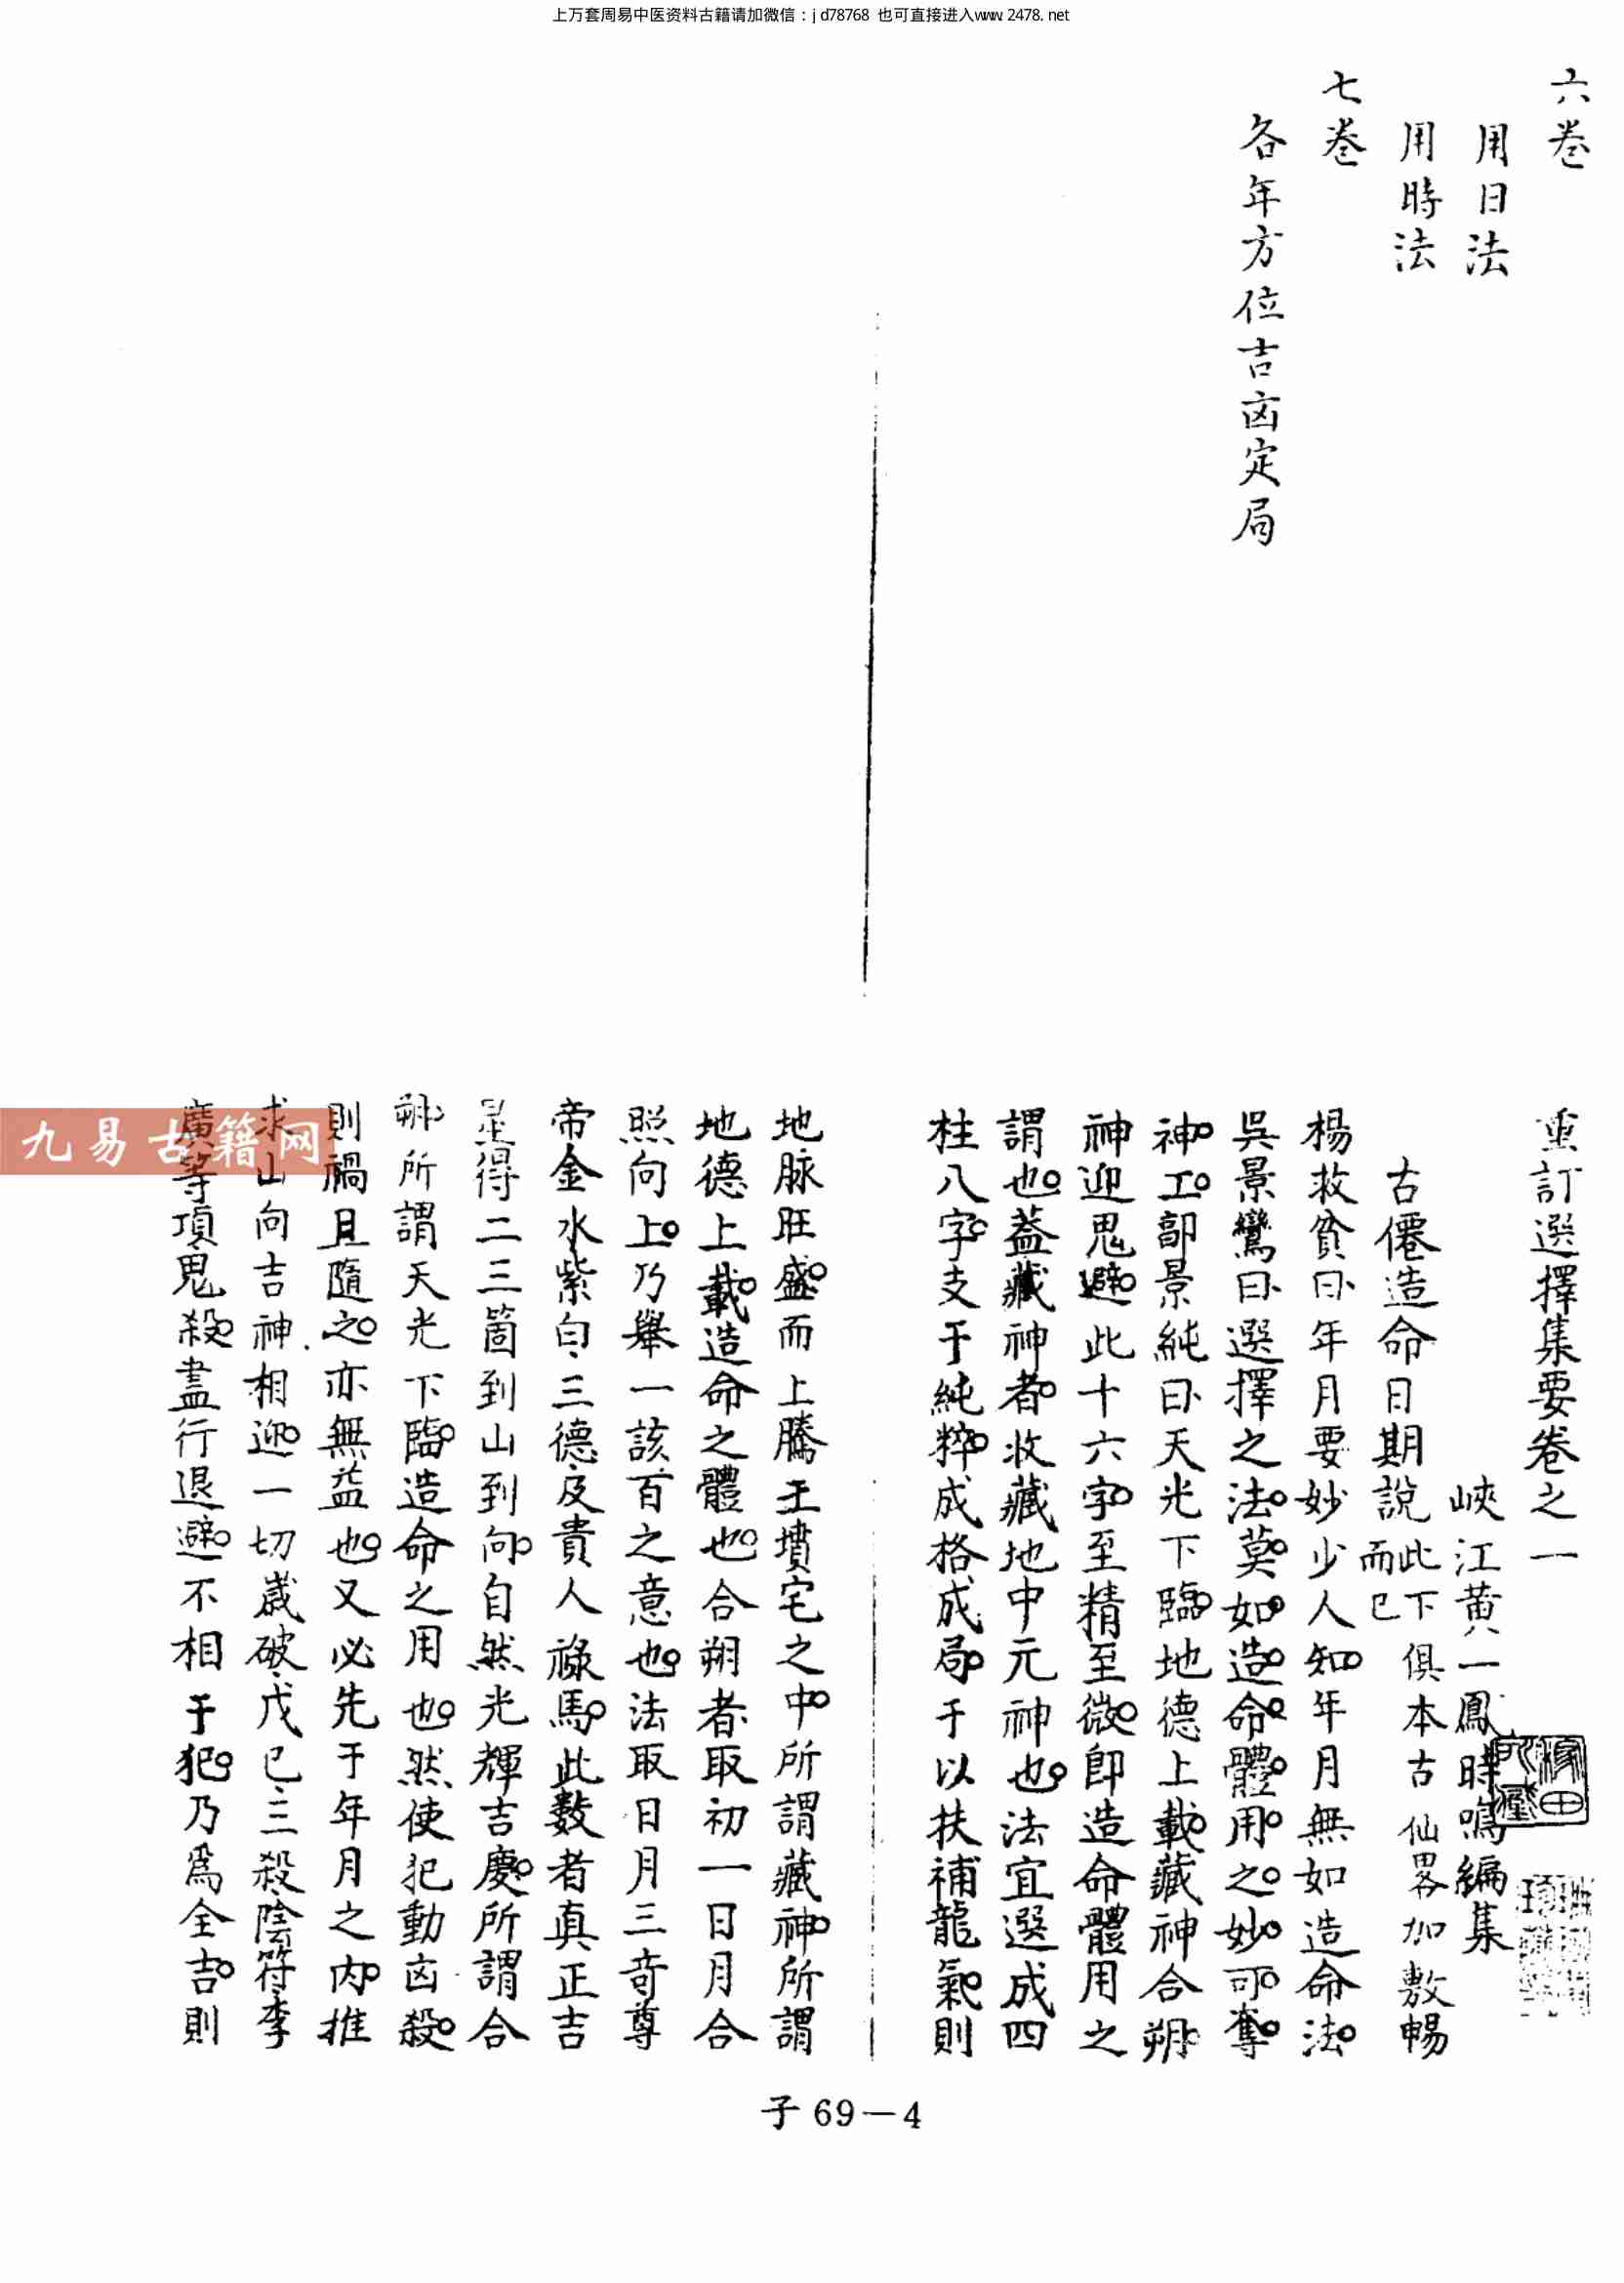 上万套周易中医资料古籍请加微信：jd78768 也可直接进入www.2478.net
六卷
用日法
用時法
七卷
各年方位吉凶定局
重訂選擇集要卷之一
峽江黄一鳳時鳴編集
古僊造命日期說此下俱本古仙畧加敷暢而已
楊救貧曰年月要妙少人知年月無如造命法
吳景鸞曰選擇之法莫如造命體用之妙可奪
神工郭景純曰天光下臨地德上載藏神合朔
神迎鬼避此十六字至精至微即造命體用之
謂也葢藏神者收藏地中元神也法宜選成四
柱八字支干純粹成格成局于以扶補龍氣則
地脉旺盛而上騰王墳宅之中所謂藏神所謂
地德上載造命之體也合朔者取初一日月合
照向上乃舉一該百之意也法取日月三奇尊
帝金水紫白三德及貴人祿馬此數者真正吉
星得二三箇到山到向自然光輝吉慶所謂合
朔所謂天光下臨造命之用也然使犯動凶殺
則禍且隨之亦無益也又必先于年月之内推
求山向吉神相迎一切歲破戊已三殺陰符李
廣等項鬼殺盡行退避不相干犯乃爲全吉則
九易古籍网
子 69－4